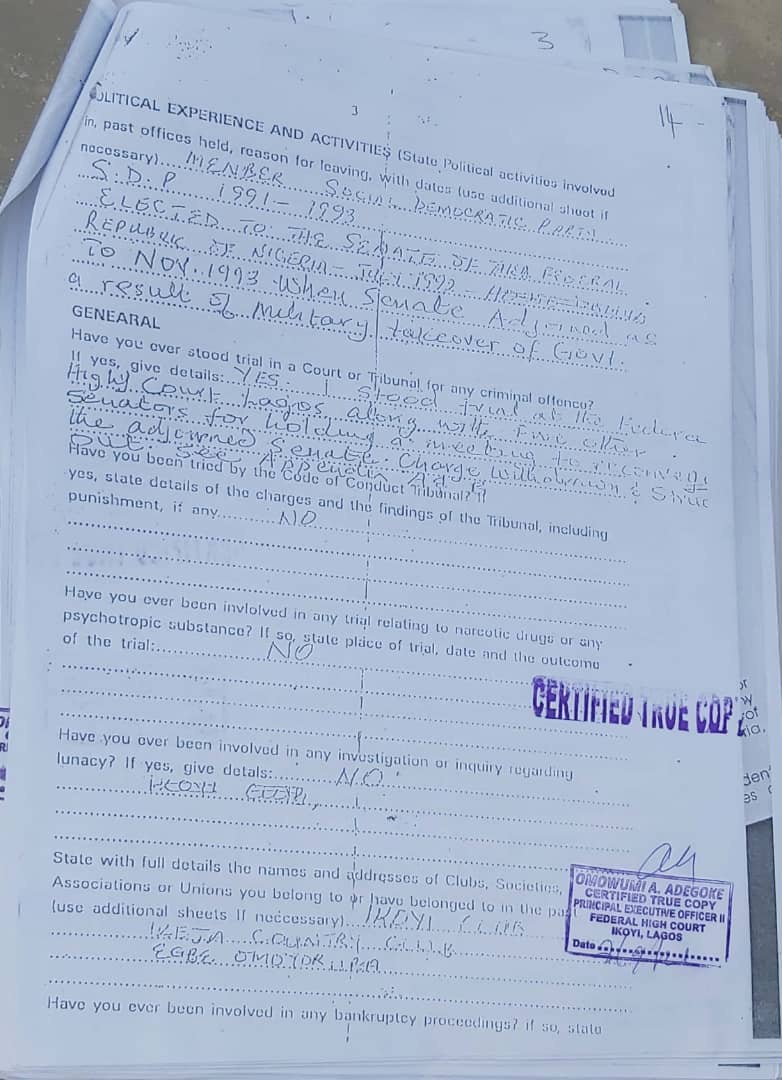 3
14
3
POLITICAL EXPERIENCE AND ACTIVITIES (State Political activities involved
in, past offices held, reason for leaving, with dates (use additional sheet if
necessary)... MENBER SOCIAL DEMOCRATIC PARTY
S.D.P 1991 - 1993
ELECTED TO THE SENATE OF THE FEDERAL
REPUBLIC OF NIGERIA - 1992 -
TO NOV. 1993 When Senate Adjorned as
a result of Military takeover of Govt.
GENEARAL
Have you ever stood trial in a Court or Tribunal for any criminal offence?
If yes, give details: YES. I stood trial at the Federa
High Court Lagos along with Five other
Senators for holding a meeting to reconvene
the adjourned Senate. Charge Withdrawn & Struc
out. See Appendix
Have you been tried by the Code of Conduct Tribunal? If
yes, state details of the charges and the findings of the Tribunal, including
punishment, if any.......... NO
Have you ever been invlolved in any trial relating to narcotic drugs or any
psychotropic substance? If so, state place of trial, date and the outcome
of the trial:.......... NO
CERTIFIED TRUE COP
Have you ever been involved in any investigation or inquiry regarding
lunacy? If yes, give detals:.......... NO
State with full details the names and addresses of Clubs, Societies,
Associations or Unions you belong to or have belonged to in the past
(use additional sheets If neccessary).... IKOYI CLUB
IKEJA COUNTRY CLUB
EGBE OMO YORUBA
OMOWUMI A. ADEGOKE
CERTIFIED TRUE COPY
PRINCIPAL EXECUTIVE OFFICER II
FEDERAL HIGH COURT
IKOYI, LAGOS
Date
Have you ever been involved in any bankruptcy proceedings? if so, state